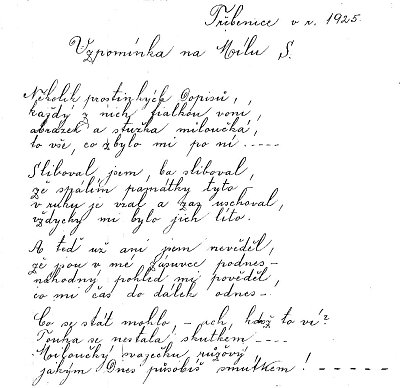 Třebenice v r. 1925.
Vzpomínka na Mílu Š.
Několik prostinkých dopisů,,
každý z nich fialkou voní,
obrázek a stužka miloučká,
to vše, co zbylo mi po ní.----
Sliboval jsem, ba sliboval,
že spálím památky tyto -
v ruku je vzal a zas uschoval,
vždycky mi bylo jich líto.
A teď už ani jsem nevěděl,
že jsou v mé zásuvce podnes -
náhodný pohled mi pověděl,
co mi čas do dálek odnes -
Co se stát mohlo, - ach, kdož to ví?
Touha se nestala skutkem ----
Miloučký svazečku růžový
jakým dnes působíš smutkem! -----